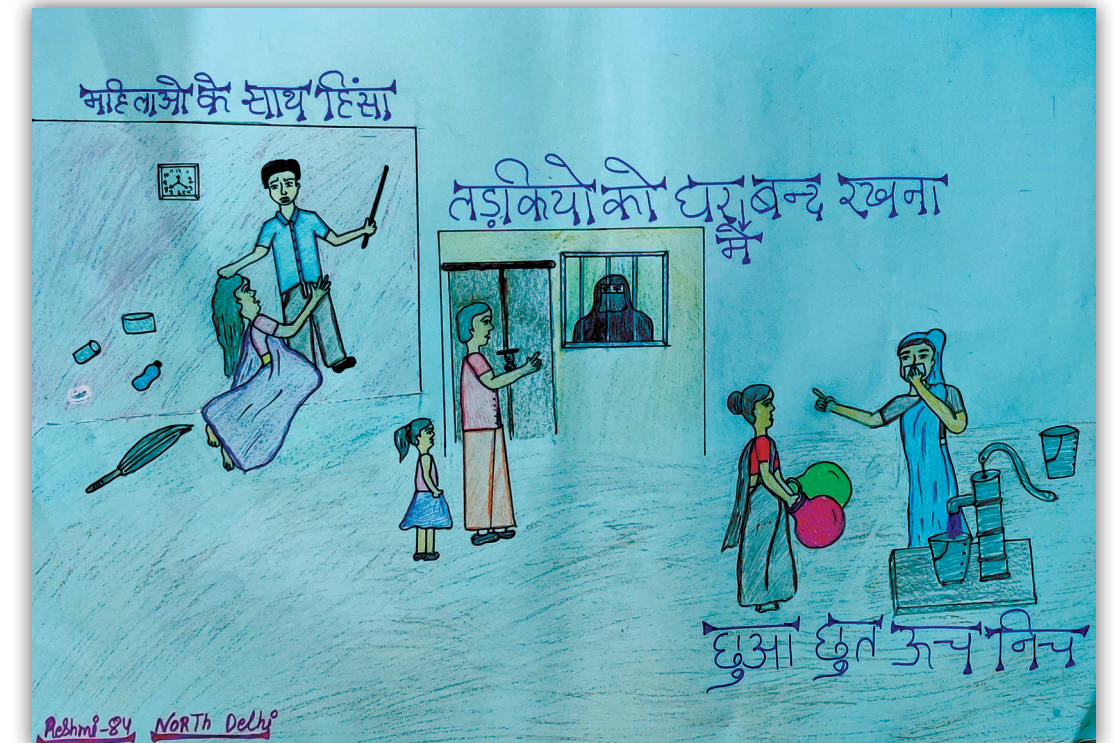 महिलाओ के साथ हिंसा
लड़कियो को घर बन्द रखना
मै
छुआ छुत ऊच निच
Reshmi-84 NORTh Delhi